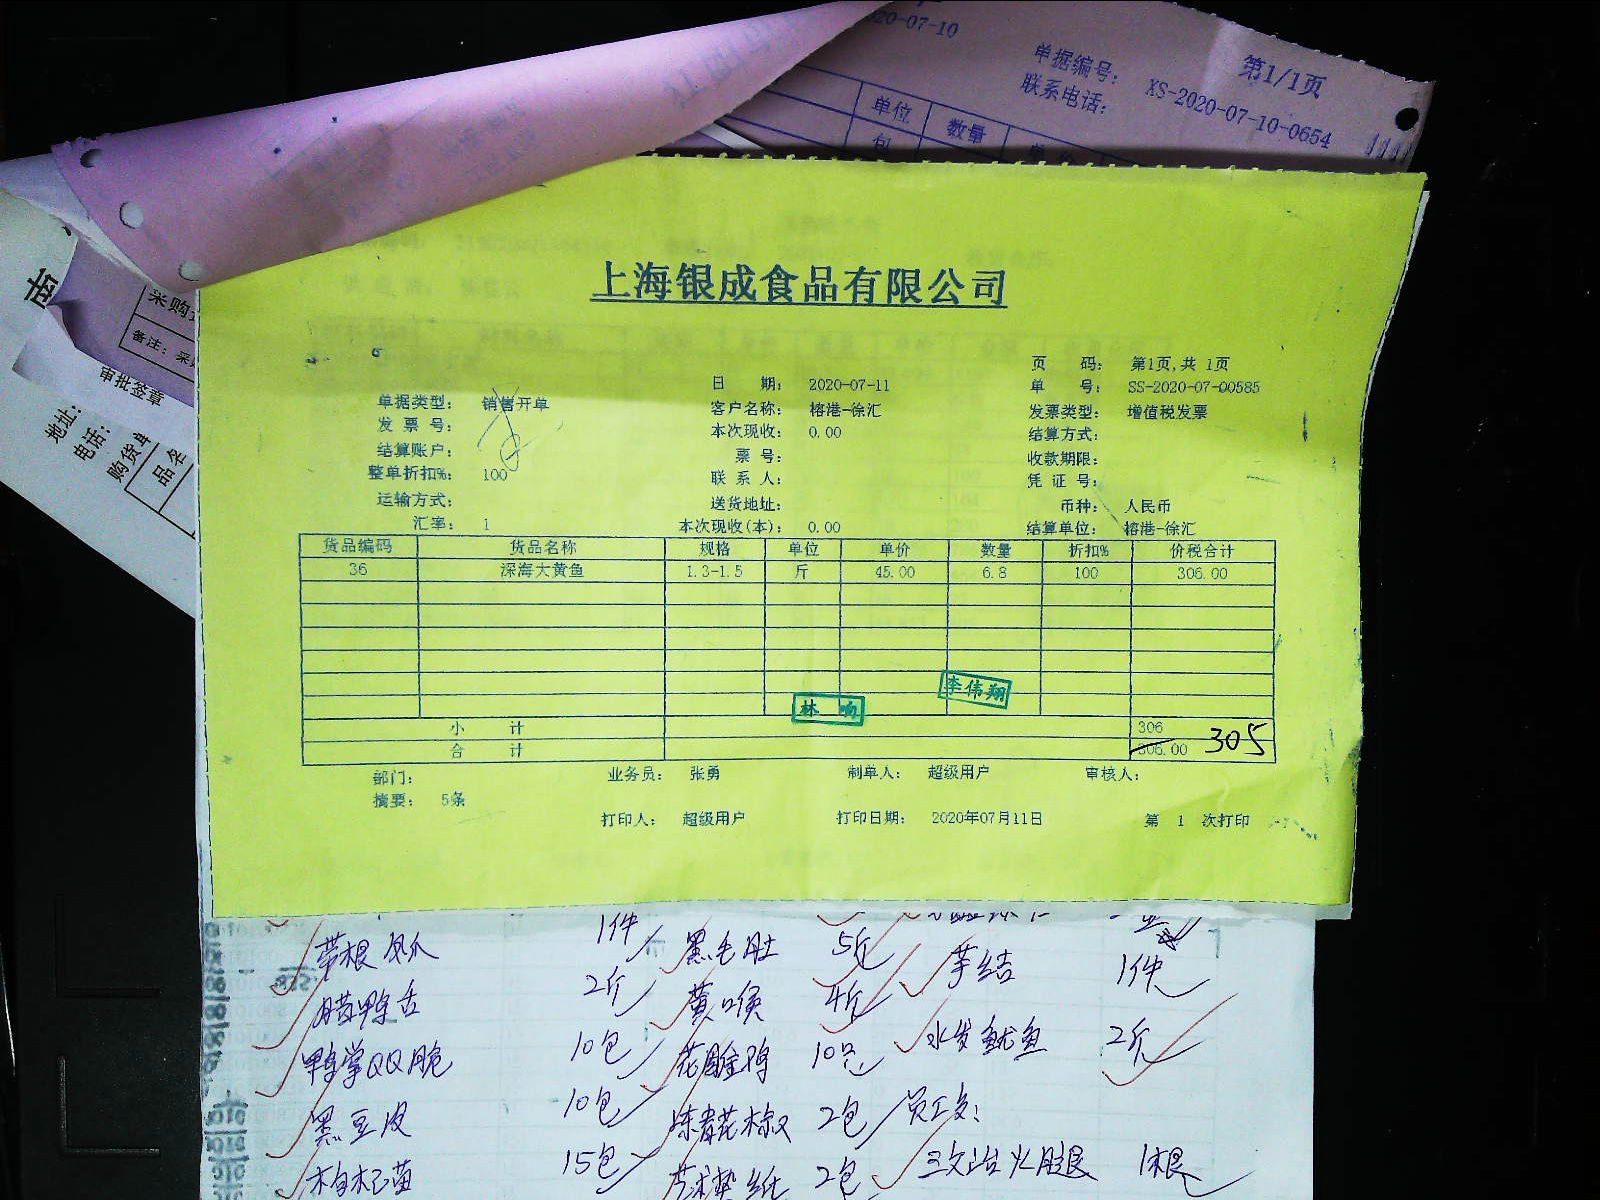 20-07-10
第1/1页
单据编号： XS-2020-07-10-0654
联系电话：
单位 数量
包
采购
备注：采
审批签章
地址：
电话：
购货单
品名
上海银成食品有限公司
页 码： 第1页,共 1页
日 期： 2020-07-11 单 号： SS-2020-07-00585
单据类型： 销售开单 客户名称： 榕港-徐汇 发票类型： 增值税发票
发 票 号： 本次现收： 0.00 结算方式：
结算账户： 票 号： 收款期限：
整单折扣%： 100 联 系 人： 凭 证 号：
运输方式： 送货地址： 币种： 人民币
汇率： 1 本次现收(本)： 0.00 结算单位： 榕港-徐汇
货品编码 货品名称 规格 单位 单价 数量 折扣% 价税合计
36 深海大黄鱼 1.3-1.5 斤 45.00 6.8 100 306.00
李伟翔
林 响
小 计 306
合 计 306.00 305
部门： 业务员： 张勇 制单人： 超级用户 审核人：
摘要： 5条
打印人： 超级用户 打印日期： 2020年07月11日 第 1 次打印
带根 1件 黑毛肚 5斤 芋结 1件
腊鸭舌 2斤 黄喉 4斤 水发鱿鱼 2斤
鸭掌QQ脆 10包 花雕鸡 10只
黑豆皮 10包 冻青花椒 2包 员工:
枸杞苗 15包 2包 三文治火腿 1根